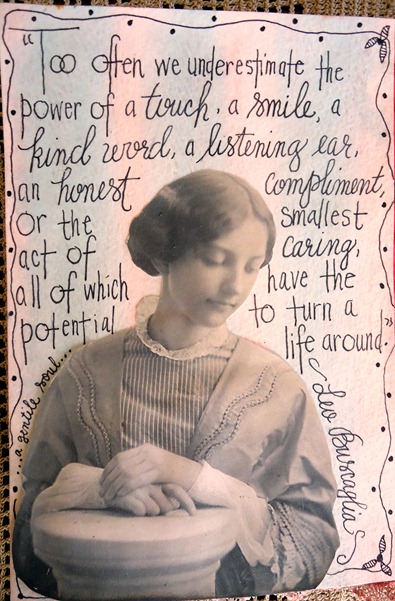 "Too often we underestimate the
power of a touch, a smile, a
kind word, a listening ear,
an honest compliment,
or the smallest
act of caring,
all of which have the
potential to turn a
life around."
Leo Buscaglia
...a gentle soul...